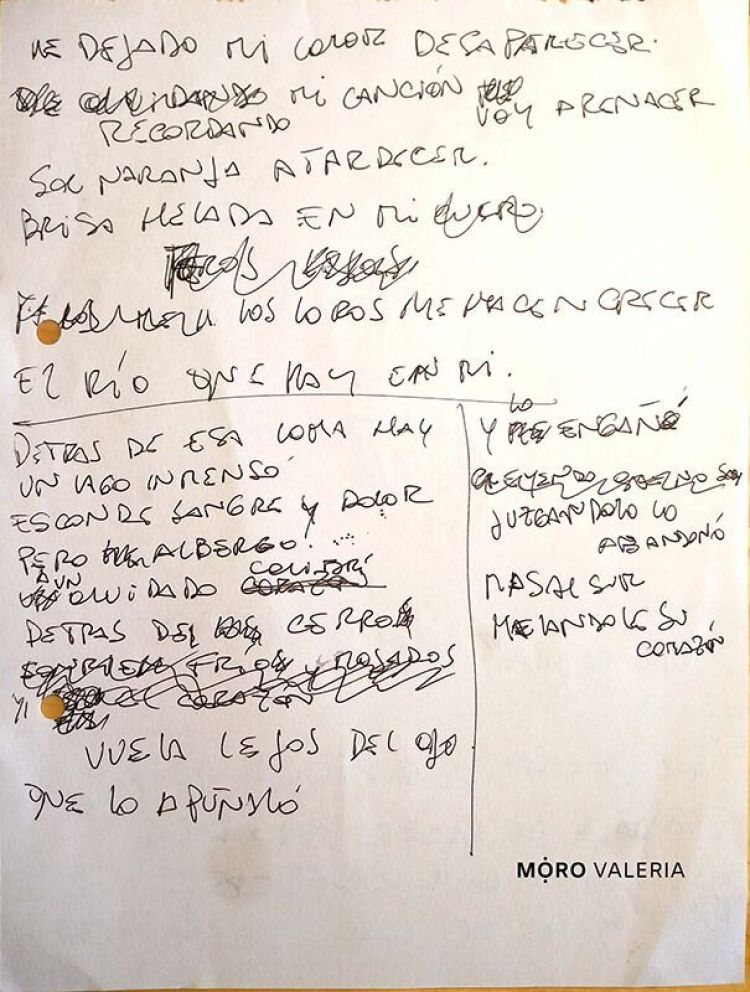 HE DEJADO MI COLOR DESAPARECER.
MI CANCIÓN VOY A RENACER
RECORDANDO
SOL NARANJA ATARDECER.
BRISA HELADA EN MI CUERO
LOS LOROS ME HACEN CRECER
EL RÍO QUE HAY EN MI.
DETRAS DE ESA LOMA HAY
UN LAGO INMENSO
ESCONDE SANGRE Y DOLOR
PERO ALBERGO
A UN OLVIDADO COLIBRÍ
DETRAS DEL CERRO
VUELA LEJOS DEL OJO
QUE LO APUÑALÓ
Y LO ENGAÑÓ
CREYENDO
JUZGANDOLO LO
ABANDONÓ
MAS AL SUR
HELANDOLE SU
CORAZÓN
MORO VALERIA